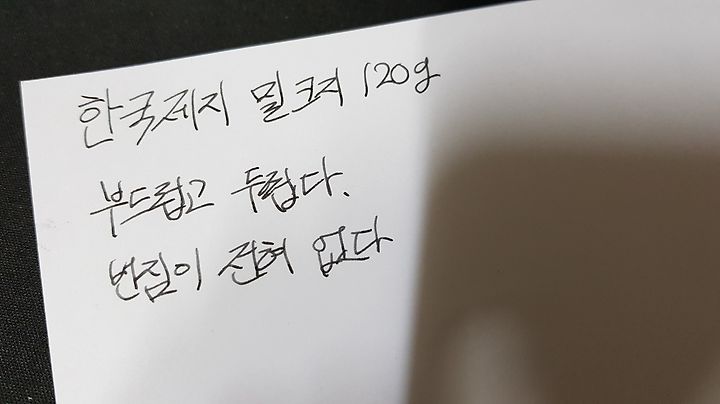 한국제지 밀크지 120g
부드럽고 두럽다.
번짐이 전혀 없다